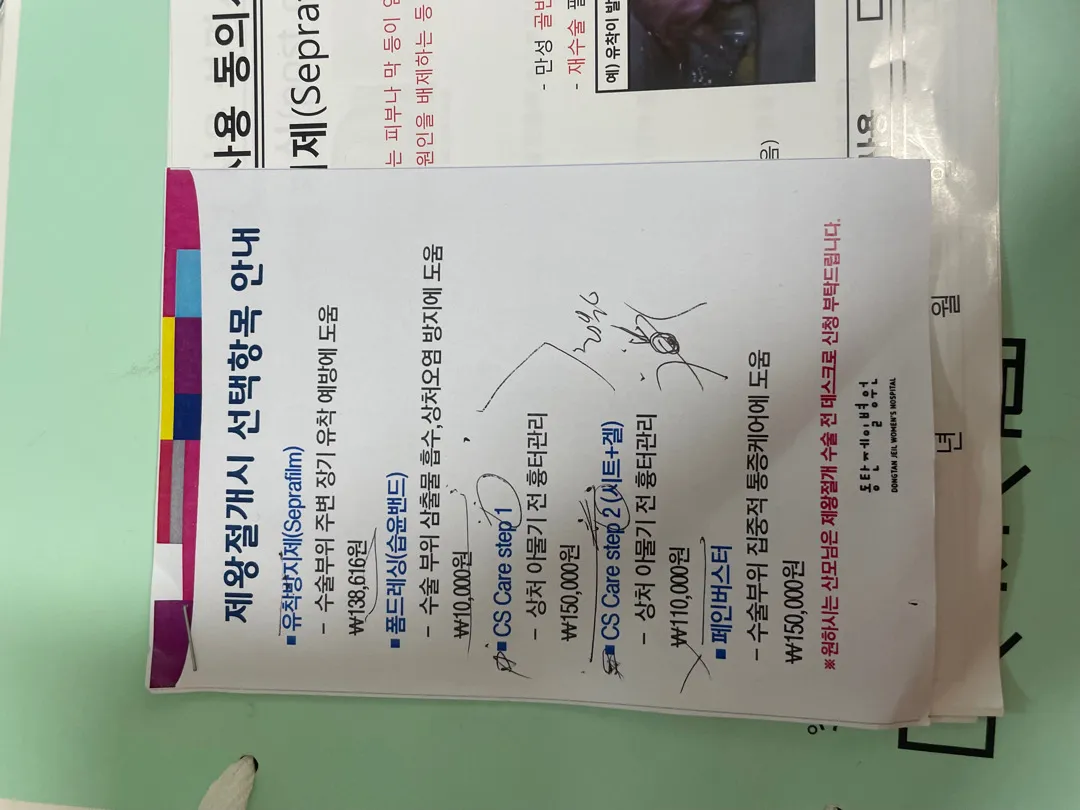 사용 동의
제(Sepra
는 피부나 막 등이
원인을 배제하는 등
- 만성 골반
- 재수술
예) 유착이 발
음)
제왕절개시 선택항목 안내
■ 유착방지제(Seprafilm)
- 수술부위 주변 장기 유착 예방에 도움
₩138,616원
■ 폼드레싱(습윤밴드)
- 수술 부위 삼출물 흡수,상처오염 방지에 도움
₩10,000원
■ CS Care step 1
- 상처 아물기 전 흉터관리
₩150,000원
■ CS Care step 2 (시트+겔)
- 상처 아물기 전 흉터관리
₩110,000원
■ 페인버스터
- 수술부위 집중적 통증케어에 도움
₩150,000원
※원하시는 산모님은 제왕절개 수술 전 데스크로 신청 부탁드립니다.
동탄제일병원
DONGTAN JEIL WOMEN'S HOSPITAL
년 월